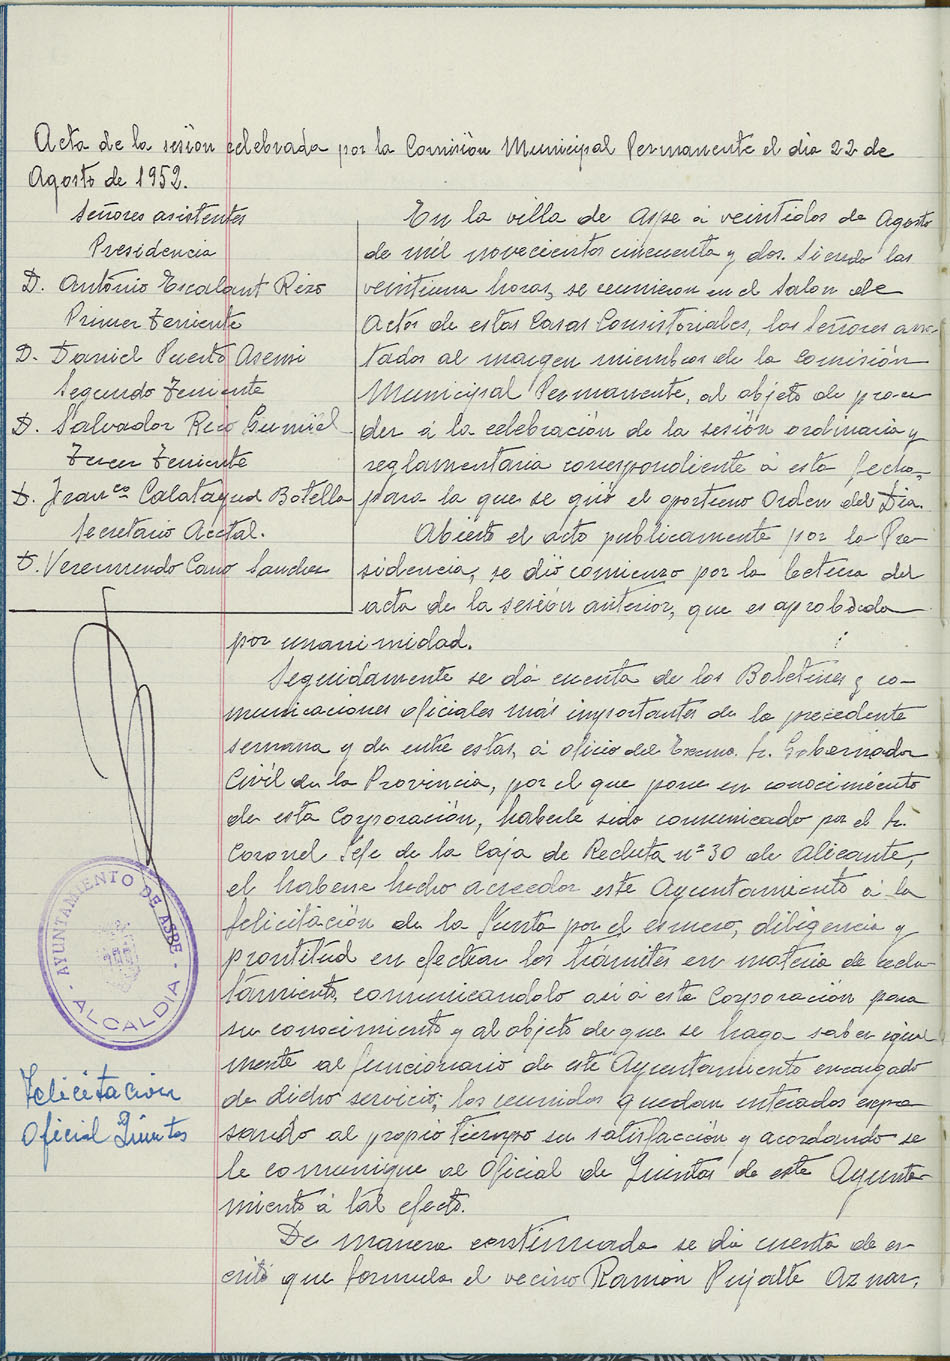 Acta de la sesión celebrada por la Comisión Municipal Permanente el dia 22 de
Agosto de 1952.
Señores asistentes
Presidencia
D. Antonio Escalant Rizo
Primer Teniente
D. Daniel Puerto Asensi
Segundo Teniente
D. Salvador Rico Gumiel
Tercer Teniente
D. Franco Calatayud Botella
Secretario Acctal.
D. Veremundo Cano Sanchez
En la villa de Aspe á veintidos de Agosto
de mil novecientos cincuenta y dos. Siendo las
veintiuna horas, se reunieron en el Salon de
Actos de estas Casas Consistoriales, los Señores ano-
tados al margen miembros de la Comisión
Municipal Permanente, al objeto de proce-
der á la celebración de la sesión ordinaria y
reglamentaria correspondiente á esta fecha,
para la que se giró el oportuno Orden del Dia.
Abierto el acto publicamente por la Pre-
sidencia, se dió comienzo por la lectura del
acta de la sesión anterior, que es aprobada
por unanimidad.
Seguidamente se dá cuenta de los Boletines y co-
municaciones oficiales más importantes de la precedente
semana y de entre estas, á oficio del Excmo. Sr. Gobernador
Civil de la Provincia, por el que pone en conocimiento
de esta Corporación, haberle sido comunicado por el Sr.
Coronel Jefe de la Caja de Recluta nº 30 de Alicante,
el haberse hecho acreedor este Ayuntamiento á la
felicitación de la Junta por el esmero, diligencia y
prontitud en efectuar los trámites en materia de reclu-
tamiento, comunicandolo así á esta Corporación para
su conocimiento y al objeto de que se haga saber igual-
mente al funcionario de este Ayuntamiento encargado
de dicho servicio; los reunidos quedan enterados expre-
sando al propio tiempo su satisfacción y acordando se
le comunique al Oficial de Quintas de este Ayunta-
miento á tal efecto.
De manera continuada se dá cuenta de es-
crito que formula el vecino Ramón Pujalte Aznar,
AYUNTAMIENTO DE ASPE
ALCALDIA
Felicitacion
Oficial Quintas